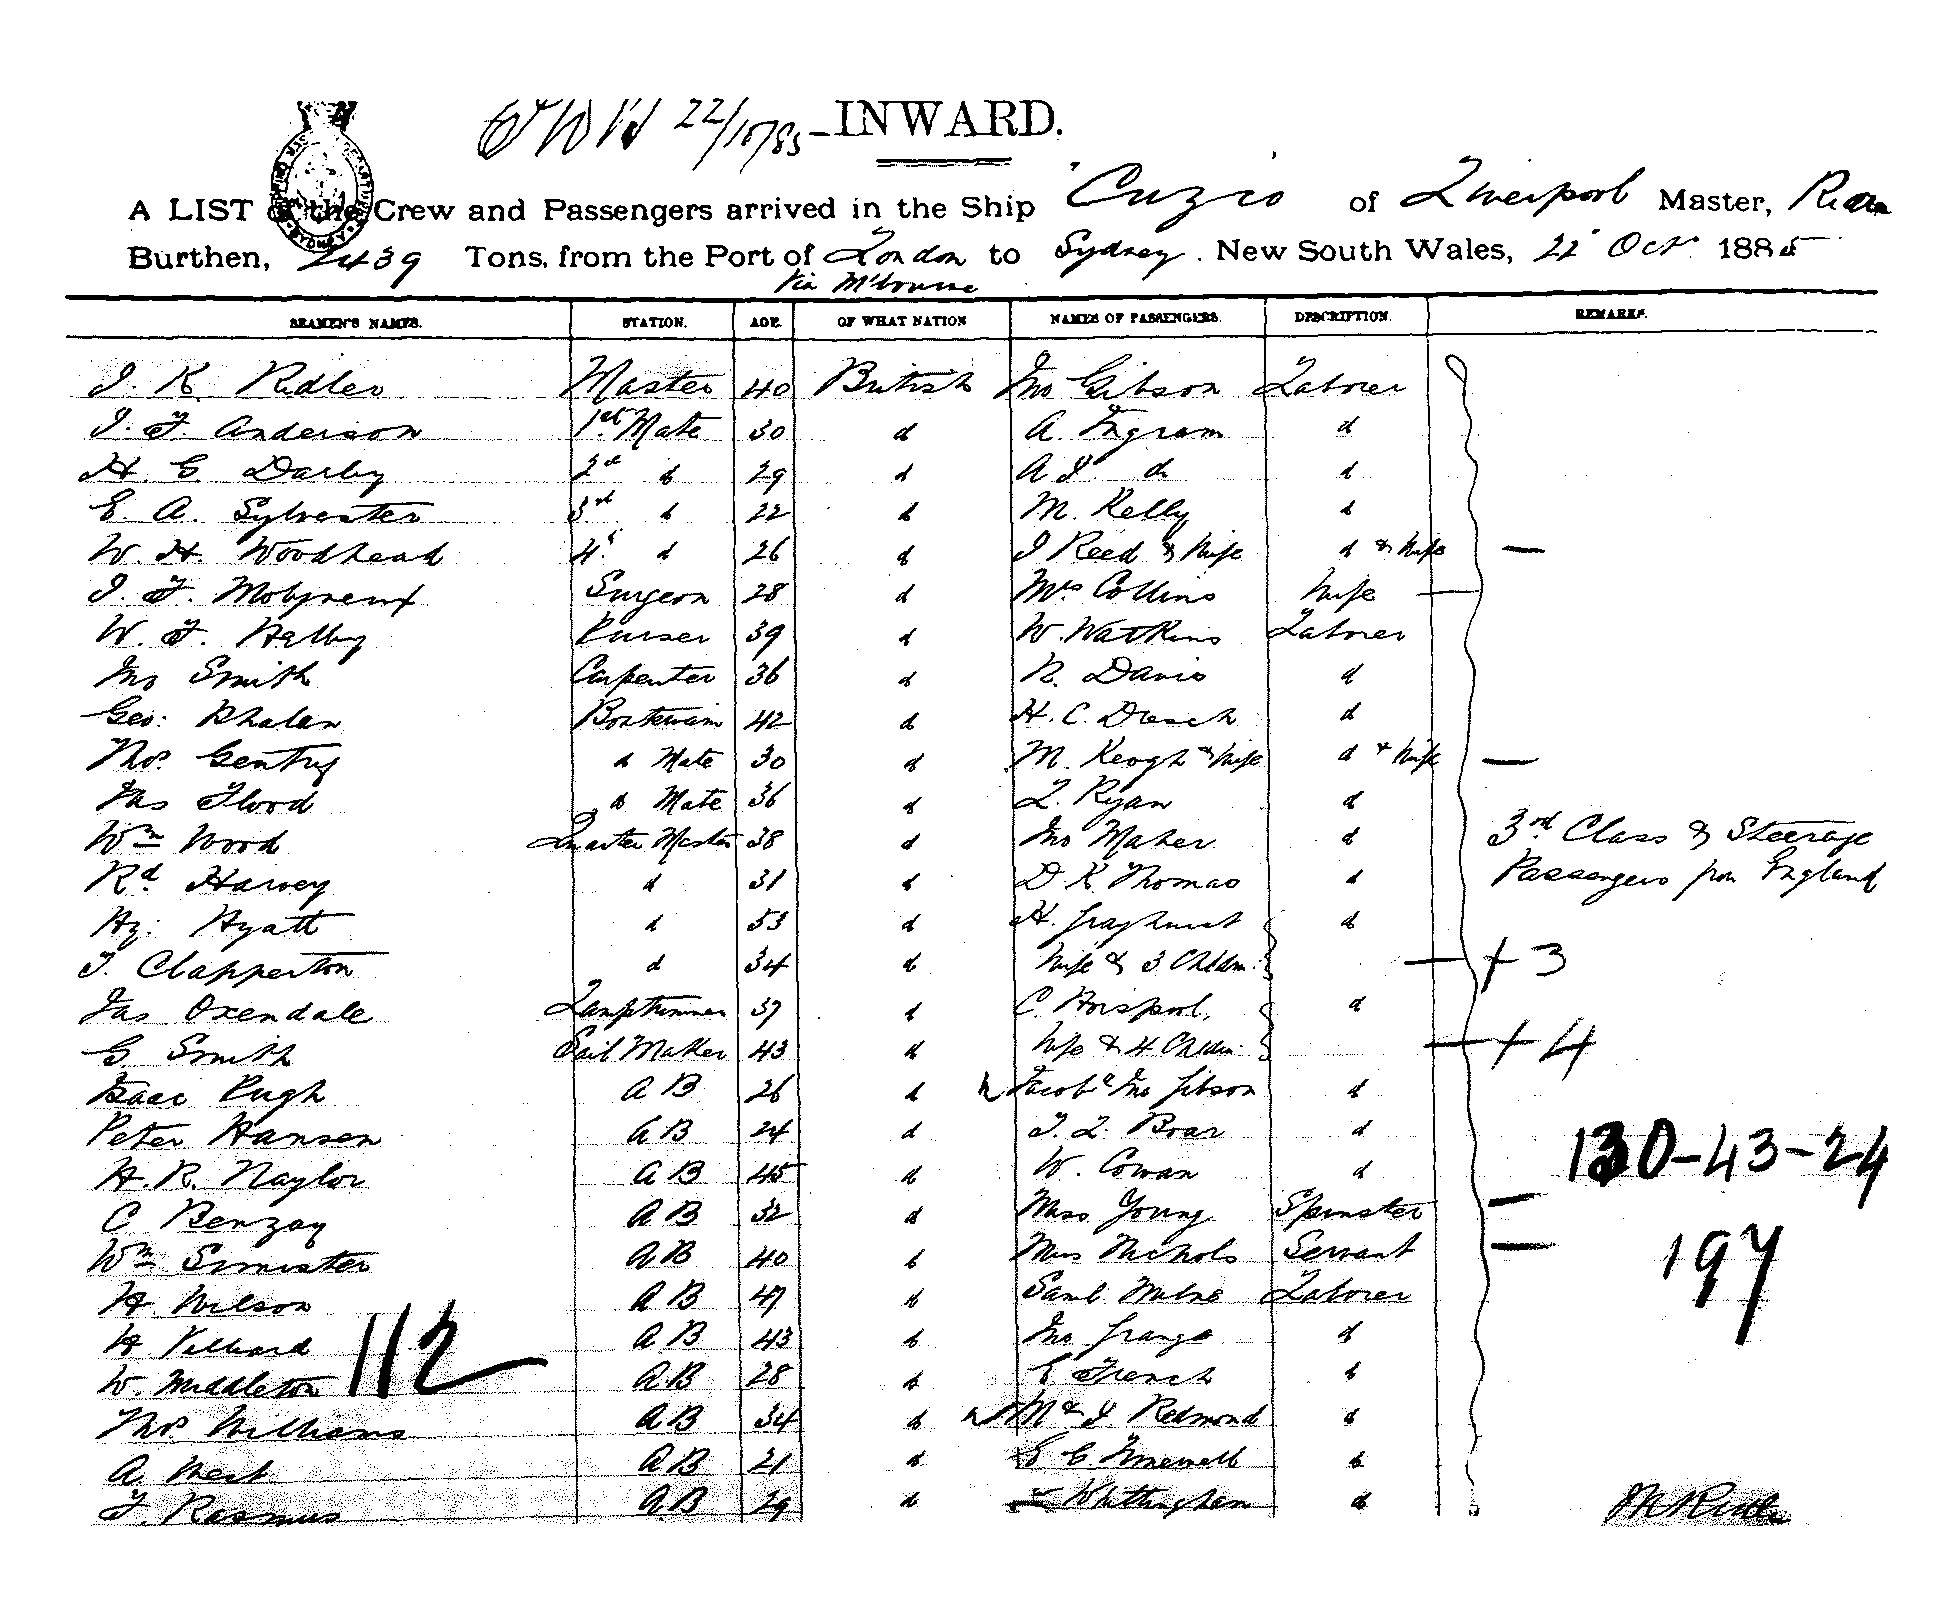 22/10/85 - INWARD.
A LIST of the Crew and Passengers arrived in the Ship "Cuzco of Liverpool Master,
Burthen, 2439 Tons, from the Port of London to Sydney. New South Wales, 22 Oct 1885
Via M'bourne
SEAMEN'S NAMES. STATION. AGE. OF WHAT NATION NAMES OF PASSENGERS. DESCRIPTION. REMARKS.
J. K. Ridler Master 40 British Jno Gibson Laborer
J. F. Anderson 1st Mate 30 d A. Ingram d
H. E. Darby 2nd d 29 d A J d d
E. A. Sylvester 3rd d 22 d M. Kelly d
W. H. Woodhead 4th d 26 d J Reed & Wife d & Wife —
J. F. Surgeon 28 d Mrs Collins Wife —
W. F. Purser 39 d W. Watkins Laborer
Jno Smith Carpenter 36 d R. Davis d
Geo: Boatswain 42 d H. C. d
Thos. Gentry d Mate 30 d M. Keogh & Wife d + Wife —
Jas Flood d Mate 36 d L. Ryan d
Wm Wood Quarter Master 38 d Jno Maher d 3rd Class & Steerage
Rd Harvey d 31 d D. K. Thomas d Passengers from England
Hy: Hyatt d 53 d H. d
T. Clapperton d 34 d Wife & 3 Childn. — + 3
Jas Oxendale Lamptrimmer 37 d C. Horspool, d
G. Smith Sail Maker 43 d Wife & 4 Childn. — + 4
Isaac Pugh A B 26 d Jacob & Jno Gibson d
Peter Hansen A B 24 d T. L. Boar d
H. R. Naylor A B 45 d W. Cowan d 130-43-24
C A B 32 d Miss Young Spinster —
Wm Simister A B 40 d Miss Nichols Servant — 197
H. Wilson A B 47 d Saml. Milne Laborer
H A B 43 d Jno Grange d
W. Middleton 112 A.B 28 d E French d
Thos. Williams A B 34 d M & J. Redmond d
A. West A B 21 d E C d
F. Rasmus A.B 29 d Whittingham d